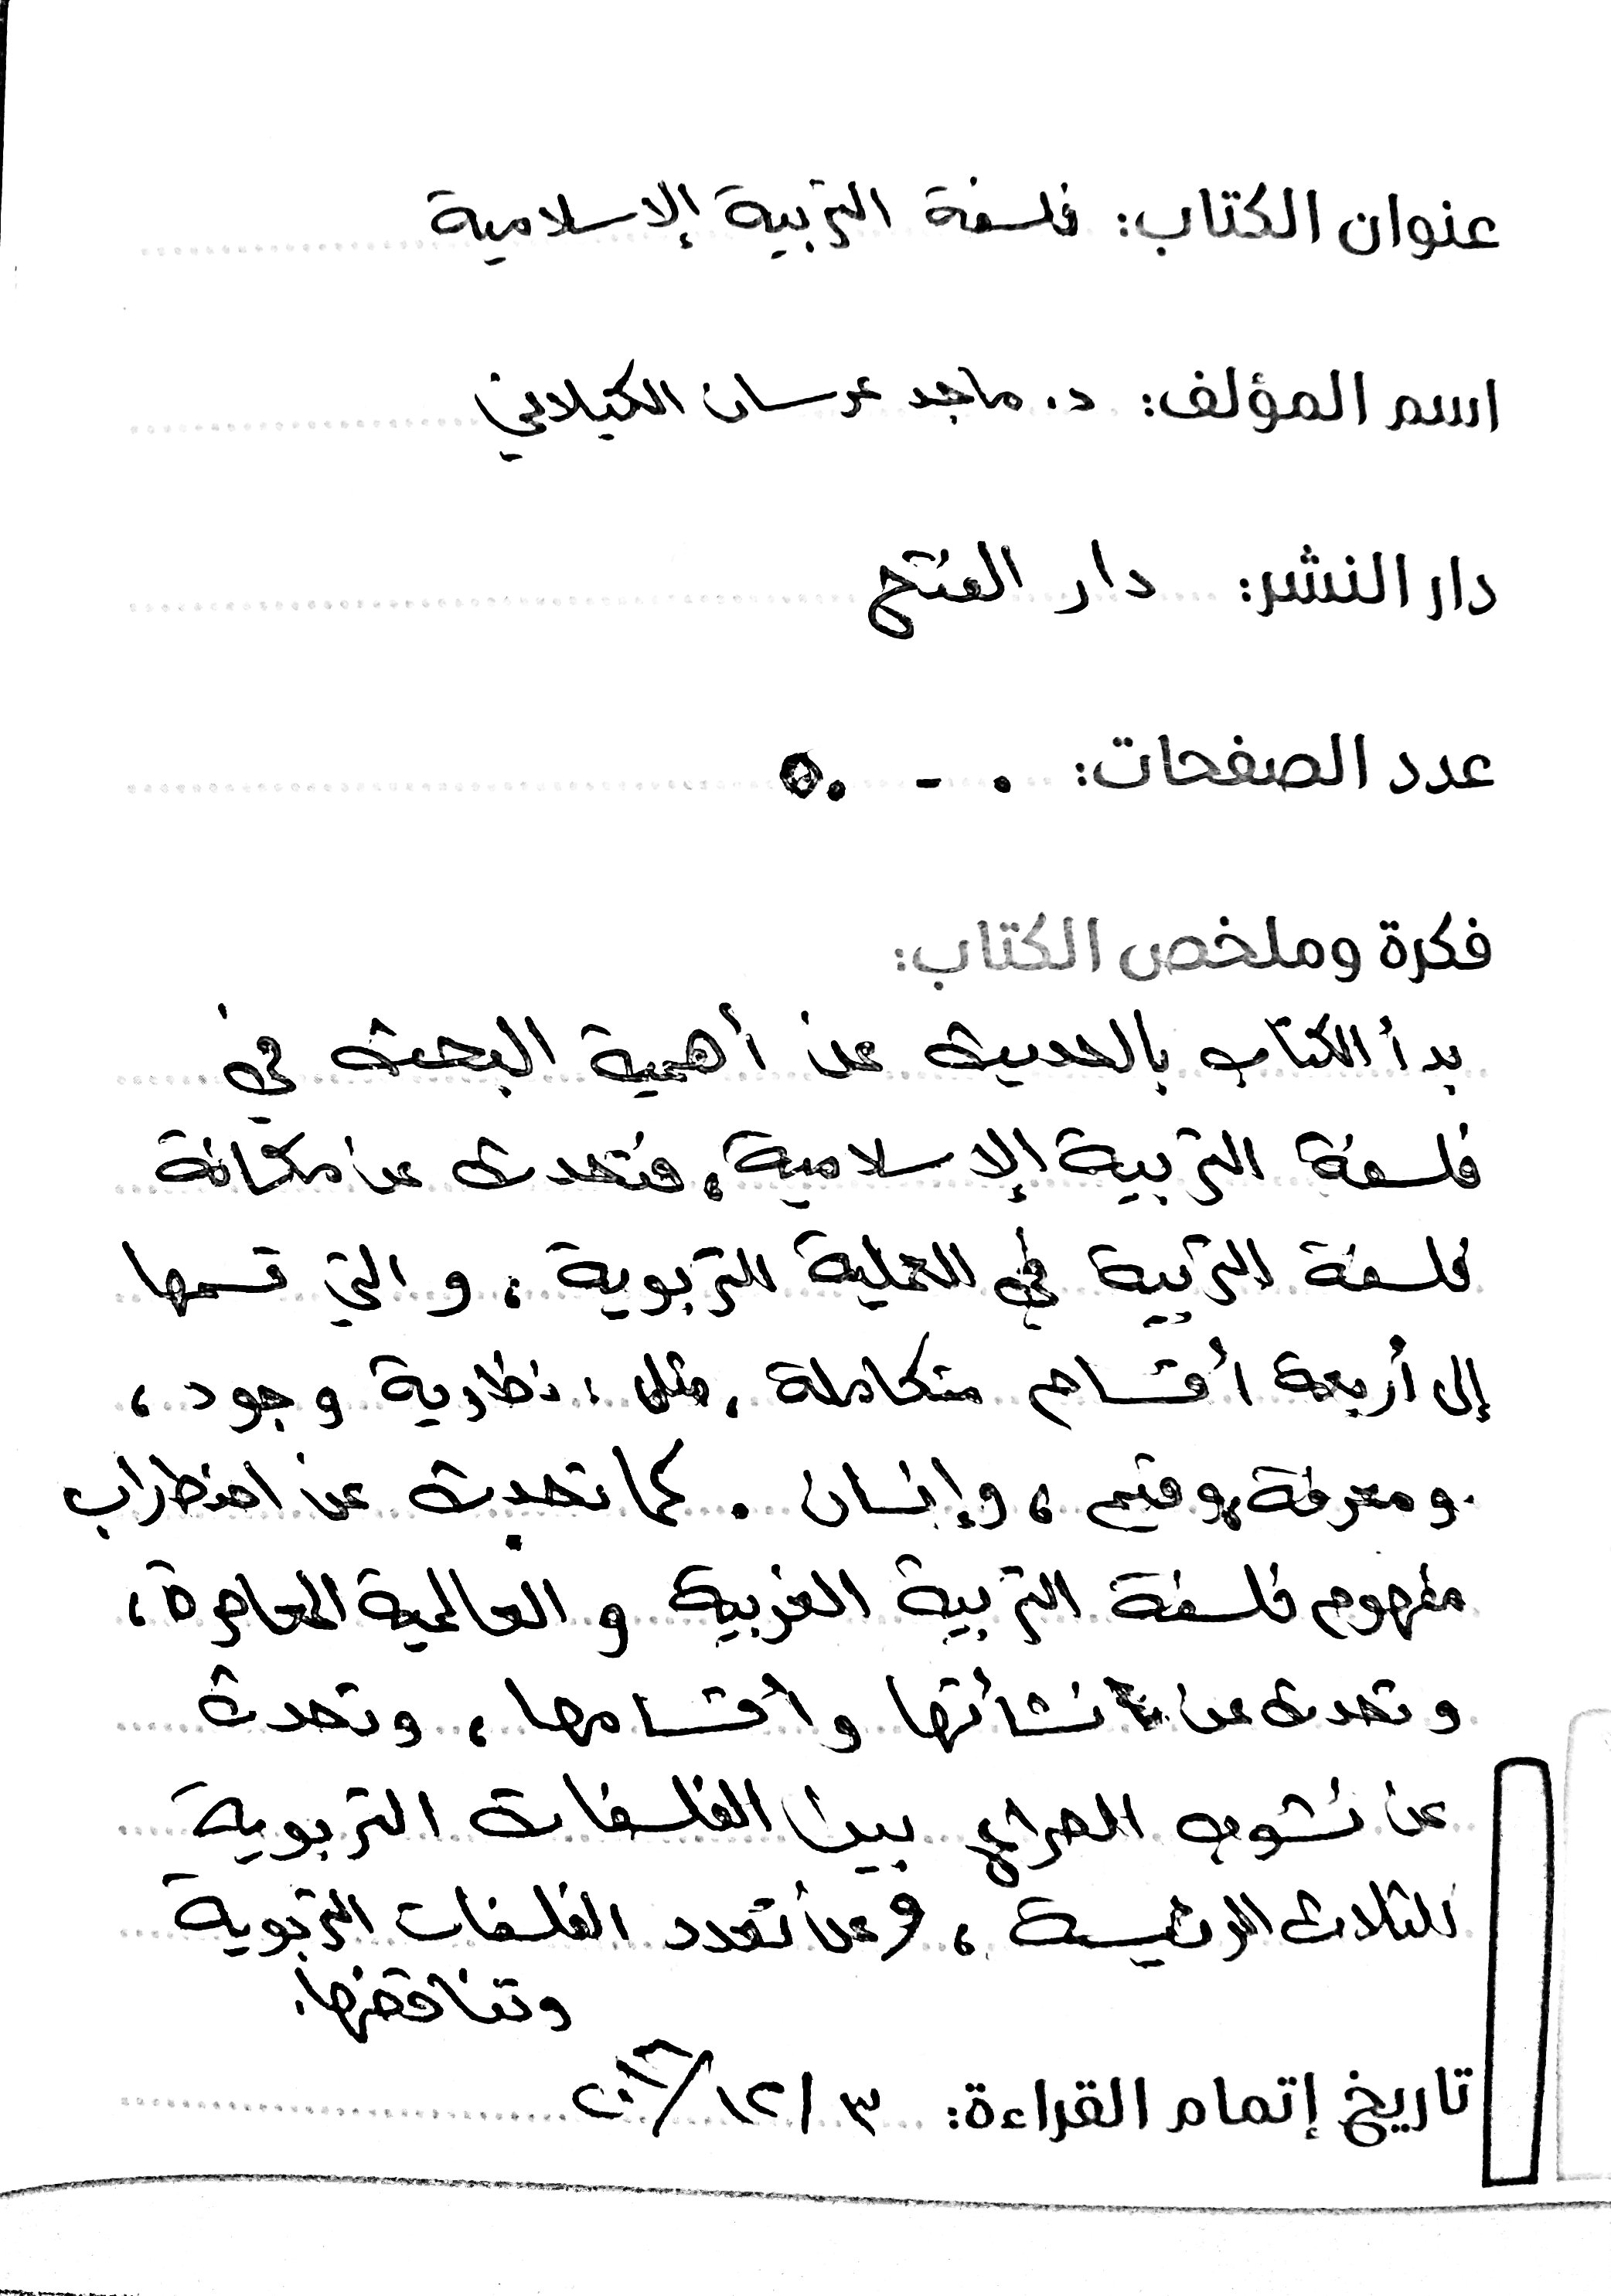 عنوان الكتاب: فلسفة التربية الإسلامية
اسم المؤلف: د. ماجد عرسان الكيلاني
دار النشر: دار الفتح
عدد الصفحات: ٠ - ٥٠
فكرة وملخص الكتاب:
بدأ الكتاب بالحديث عن أهمية البحث في
فلسفة التربية الإسلامية، فتحدث عن مكانة
فلسفة التربية في العملية التربوية، والتي قسمها
إلى أربعة أقسام متكاملة، مثل: نظرية وجود،
ومعرفة، وقيم، وإنسان. كما تحدث عن اضطراب
مفهوم فلسفة التربية الغربية والعالمية المعاصرة،
وتحدث عن نشأتها وأقسامها، وتحدث
عن نشوب الصراع بين الفلسفات التربوية
الثلاث الرئيسة، وعن تعدد الفلسفات التربوية
وتناقضها.
تاريخ إتمام القراءة: ٣ / ١٢ /